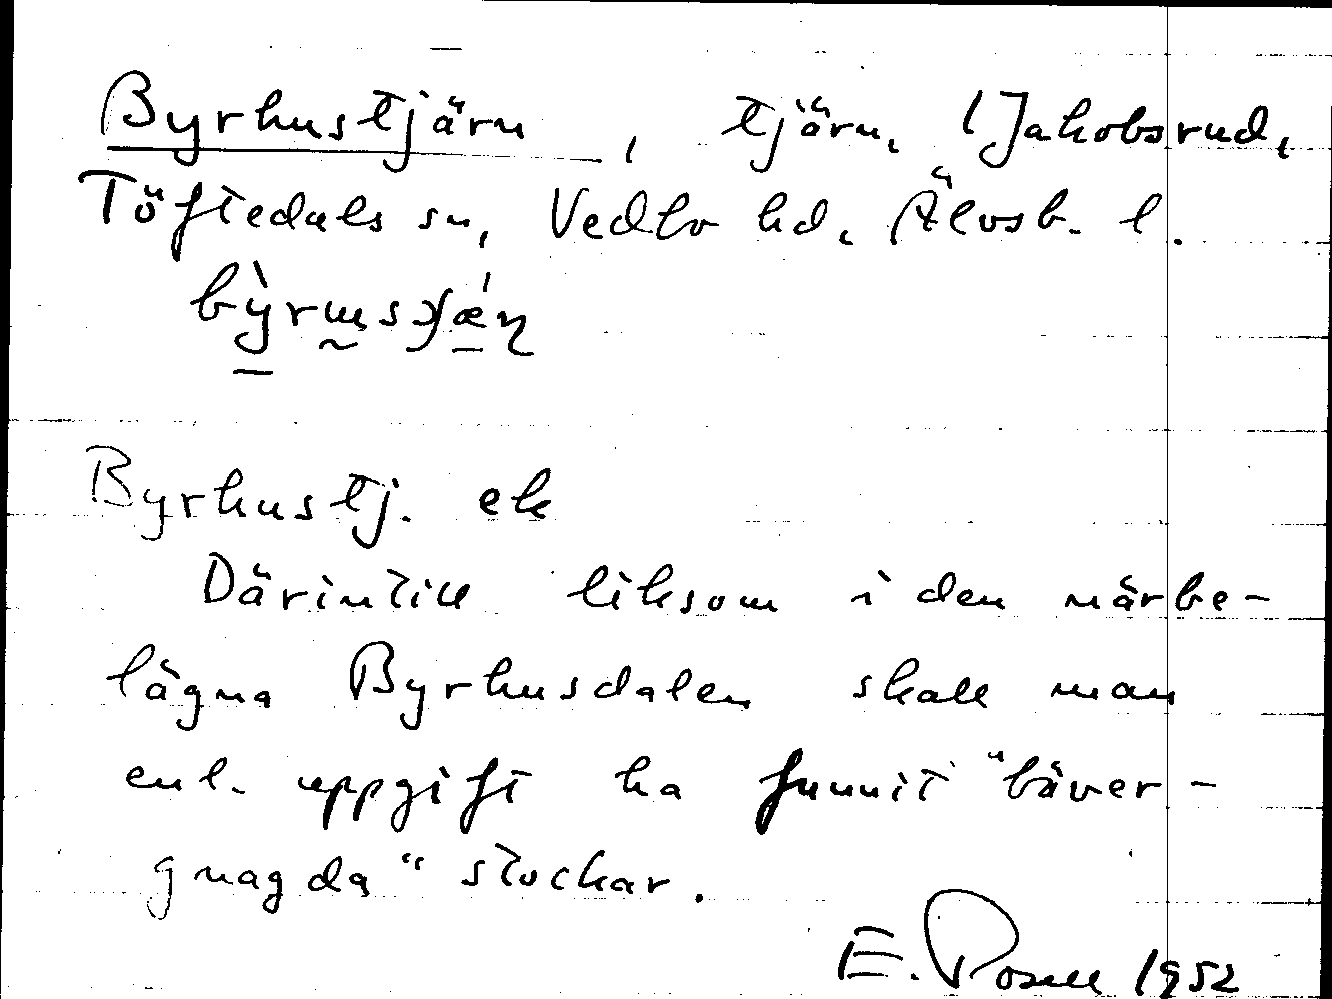 Byrhustjärn, tjärn, (Jakobsrud,
Töftedals sn, Vedbo hd, Älvsb. l.
Byrhustj. ek
Därintill liksom i den närbe-
lägna Byrhusdalen skall man
enl. uppgift ha funnit "bäver-
gnagda" stockar.
E. Posse 1952